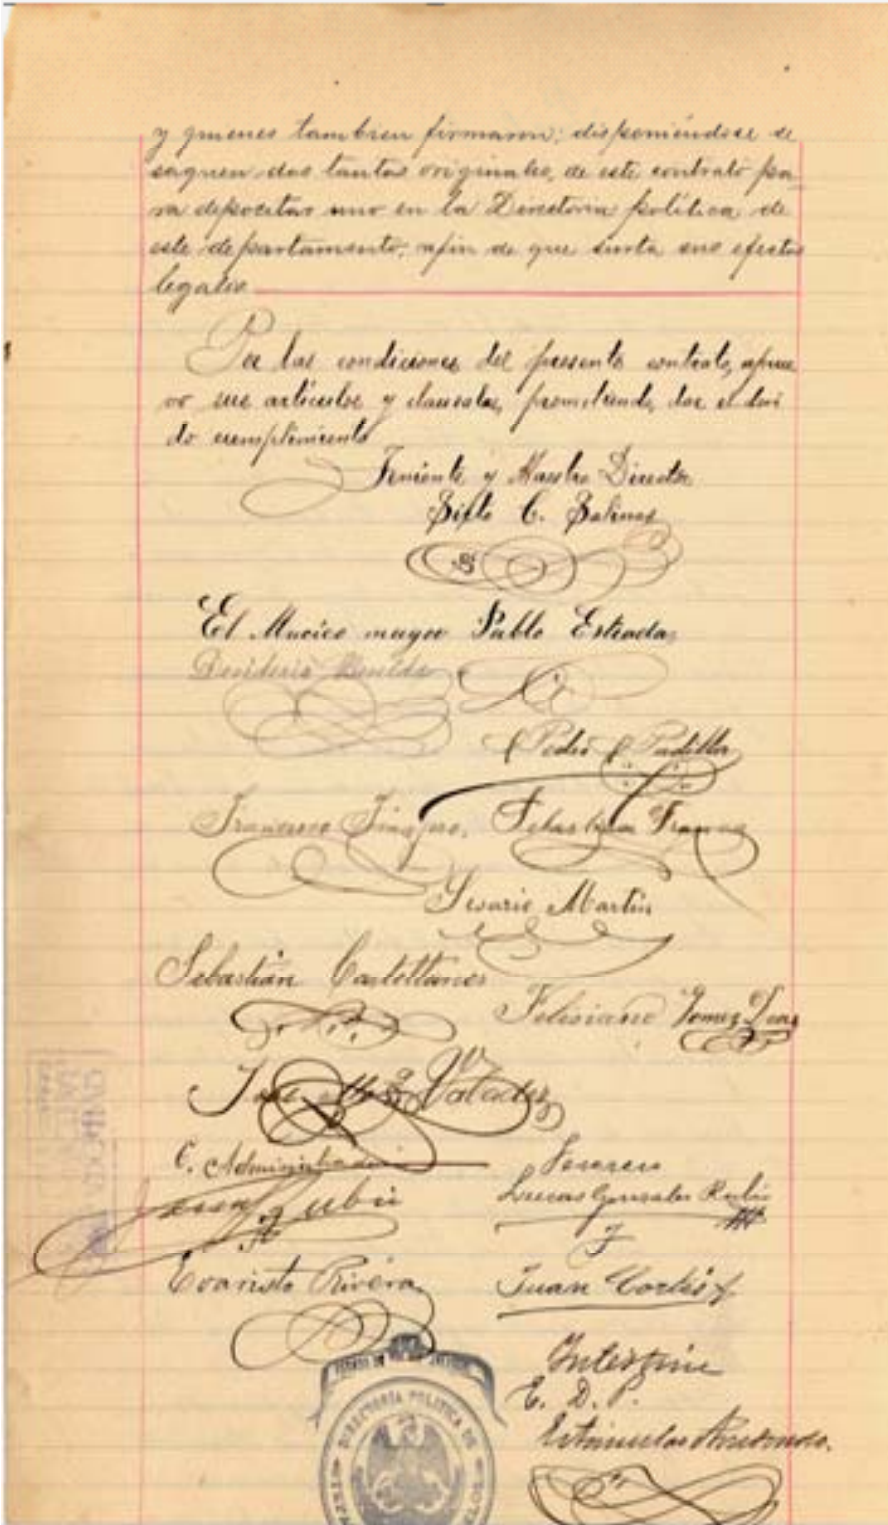 y quienes tambien firmaron; disponiéndose se
saquen dos tantos originales, de este contrato pa-
ra depositar uno en la Directoria política de
este departamento, afin de que surta sus efectos
legales
Por las condiciones del presente contrato, aprue
vo sus artículos y clausulas, prometiendo, dar el devi
do cumplimiento
Teniente y Maestro Director
Sixto C. Salinas
El Musico mayor Pablo Estrada
Desiderio
Pedro P. Padilla
Francisco Tinajero, Sebastian Franco
Sesario Martin
Sebastián Castellanos
Felisiano Gomez
Jose Valadez
C. Administrador
Tesorero
Rubio
Lucas Gonzales Rubio
Evaristo Rivera
Juan Cortés
E. D. P.
DIRECTORIA POLITICA DE